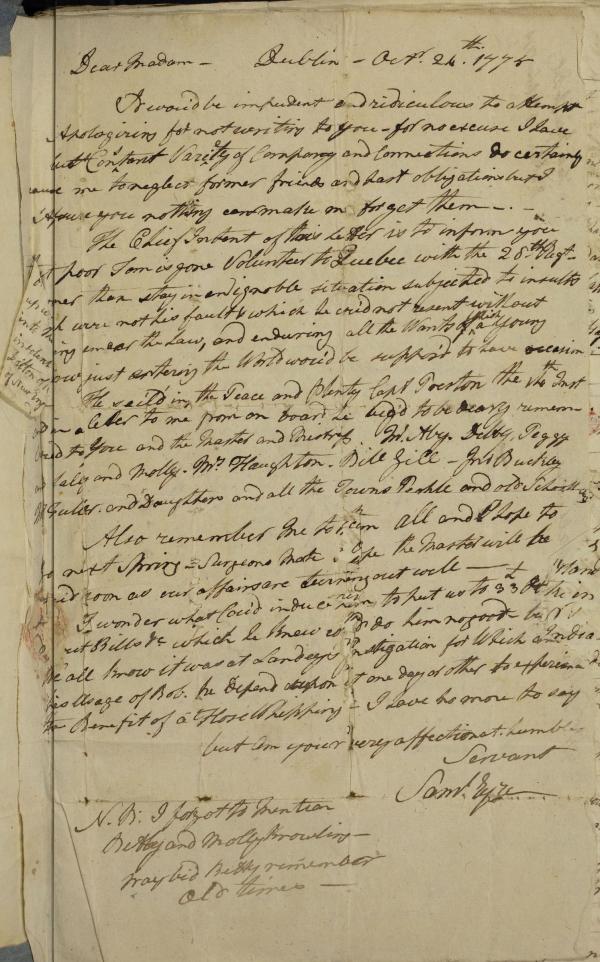 Dear Madam - Dublin - Octr. 24th. 1775
It wou'd be impudent and ridiculous to attempt
Apologizing for not writing to you - for no excuse I have
but Constant Variety of Company and Connections do certainly
cause me to neglect former friends and past obligations but I
Assure you nothing can make me forget them -
The Chief Intent of this letter is to inform you
that poor Tom is gone Volunteer to Quebec with the 28th Regt.
rather than stay in an ignoble situation subjected to insults
which were not his fault & which he cou'd not resent without
being under the Law, and enduring all the Wants of which a Young
fellow just entering the World wou'd be suppos'd to have occasion
He sail'd in the Peace and Plenty Capt. Preston the Inst
and in a letter to me from on board he beg'd to be dearly remem
bred to You and the Master and Mistress. Aby. Debby, Peggy
Sally and Molly. Mr. Haughton. Bill Gill - Jno. Buckley
Fuller. and Daughters and all the Towns People and old
Also remember me to them all and I hope to
go next Spring - Surgeons Mate. I hope the Master will be
paid soon as our affairs are turning out well -
I wonder what Cou'd induce him to put us to
Bills &c which he knew cou'd do him no good but
We all know it was at Landeys Instigation for Which and
his Usage of Bob. he depend upon it one day or other to experience
the Benefit of a Horse Whipping - I have no more to say
but am your very affectionate humble
Servant
Saml. Eyre
N.B: I forgot to mention
Betty and Molly
pray bid Betty remember
Old times -